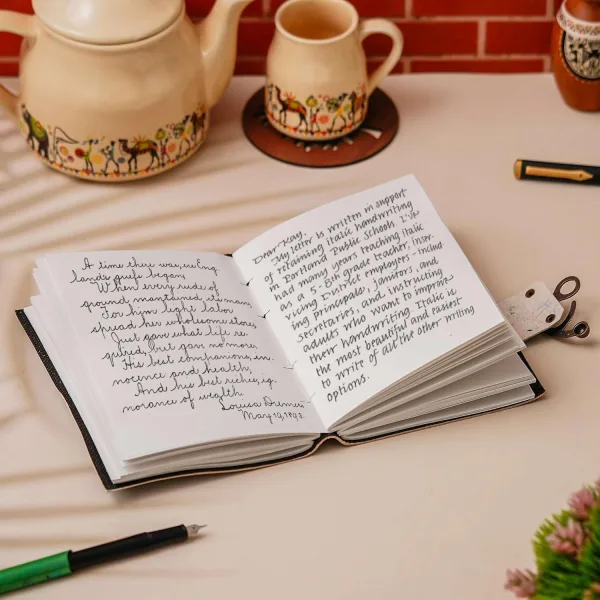 A time there was, ere Eng
land's griefs began,
When every rude of
ground maintained its man;
For him light labor
spread her wholesome store,
Just gave what life re
quired, but gave no more,
His best companions, in.
nocence and health,
And his best riches, ig.
norance of wealth.
Louisa
May 19, 
Dear Kay,
My letter is written in support
of retaining italic handwriting
in Portland Public Schools. I've
had many years teaching italic
as a 5-8th grade teacher, inser-
vicing District employees - includ
ing principals, janitors, and
secretaries, and instructing
adults who want to improve
their handwriting. Italic is
the most beautiful and easiest
to write of all the other writing
options.